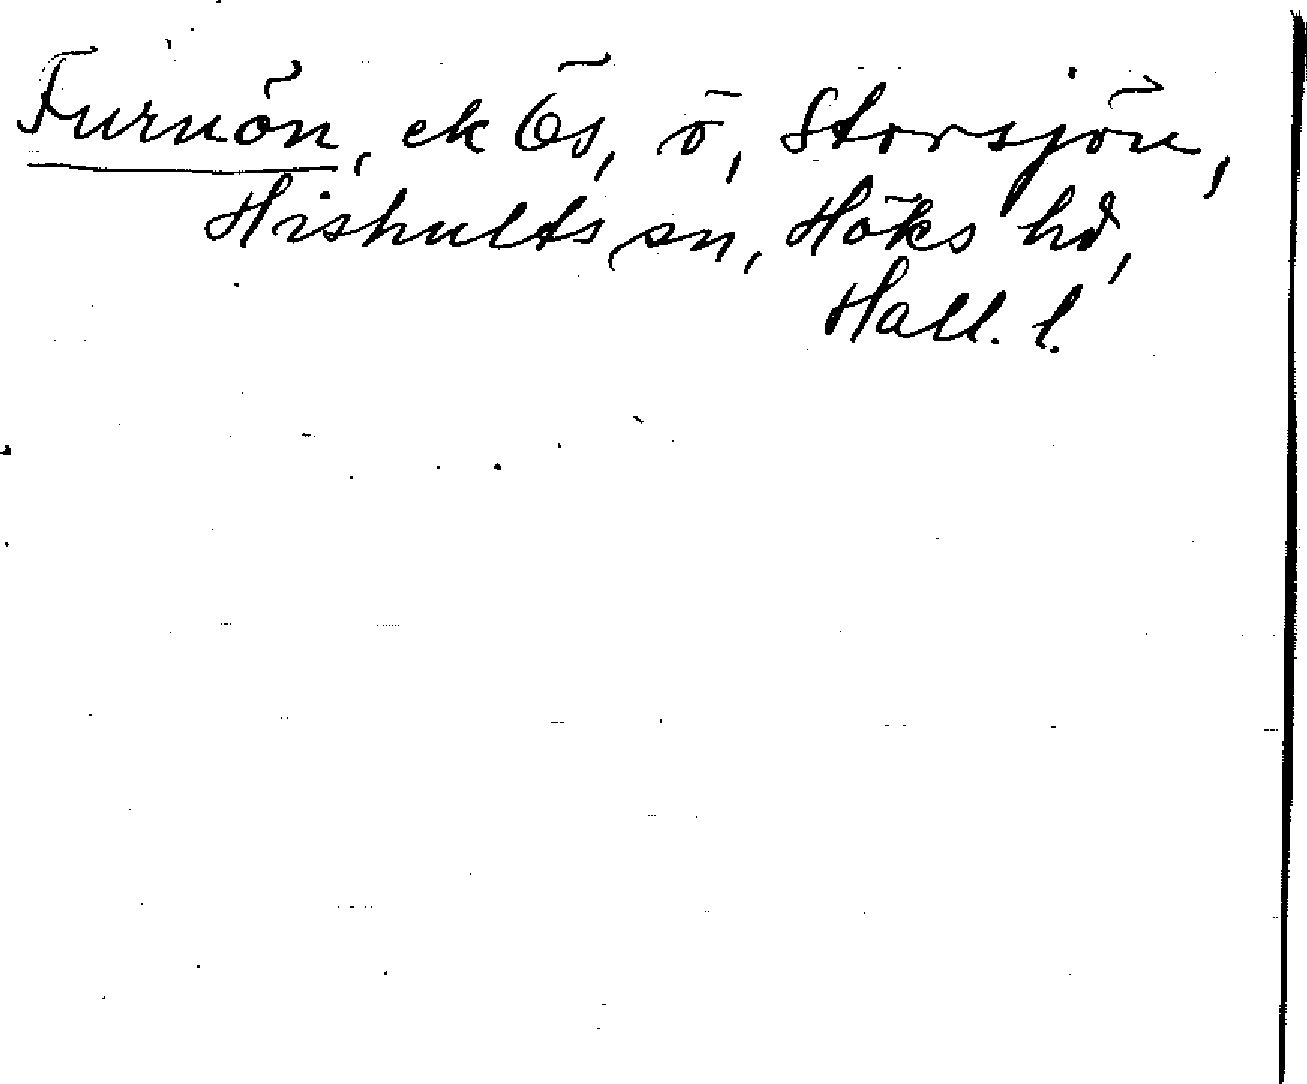 Furuön, ek Ös, ö, Storsjön,
Hishults sn, Höks hd,
Hall. l.